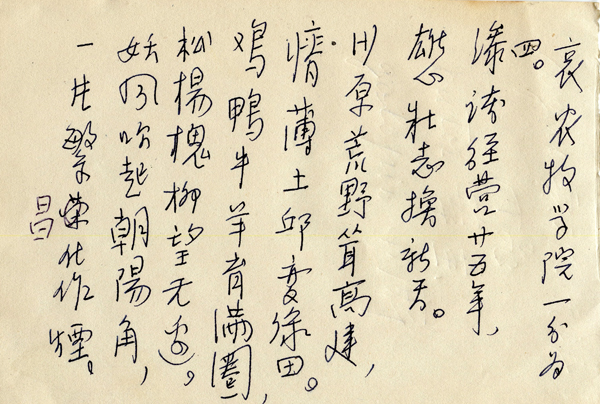 哀农牧学院一分为
四。
经营廿五年，
雄心壮志新天。
川原荒野耸高建，
瘠薄土邱变绿田。
鸡鸭牛羊育满圈，
松楊槐柳望无边。
妖风吹起朝陽角，
一片繁荣化作煙。
昌